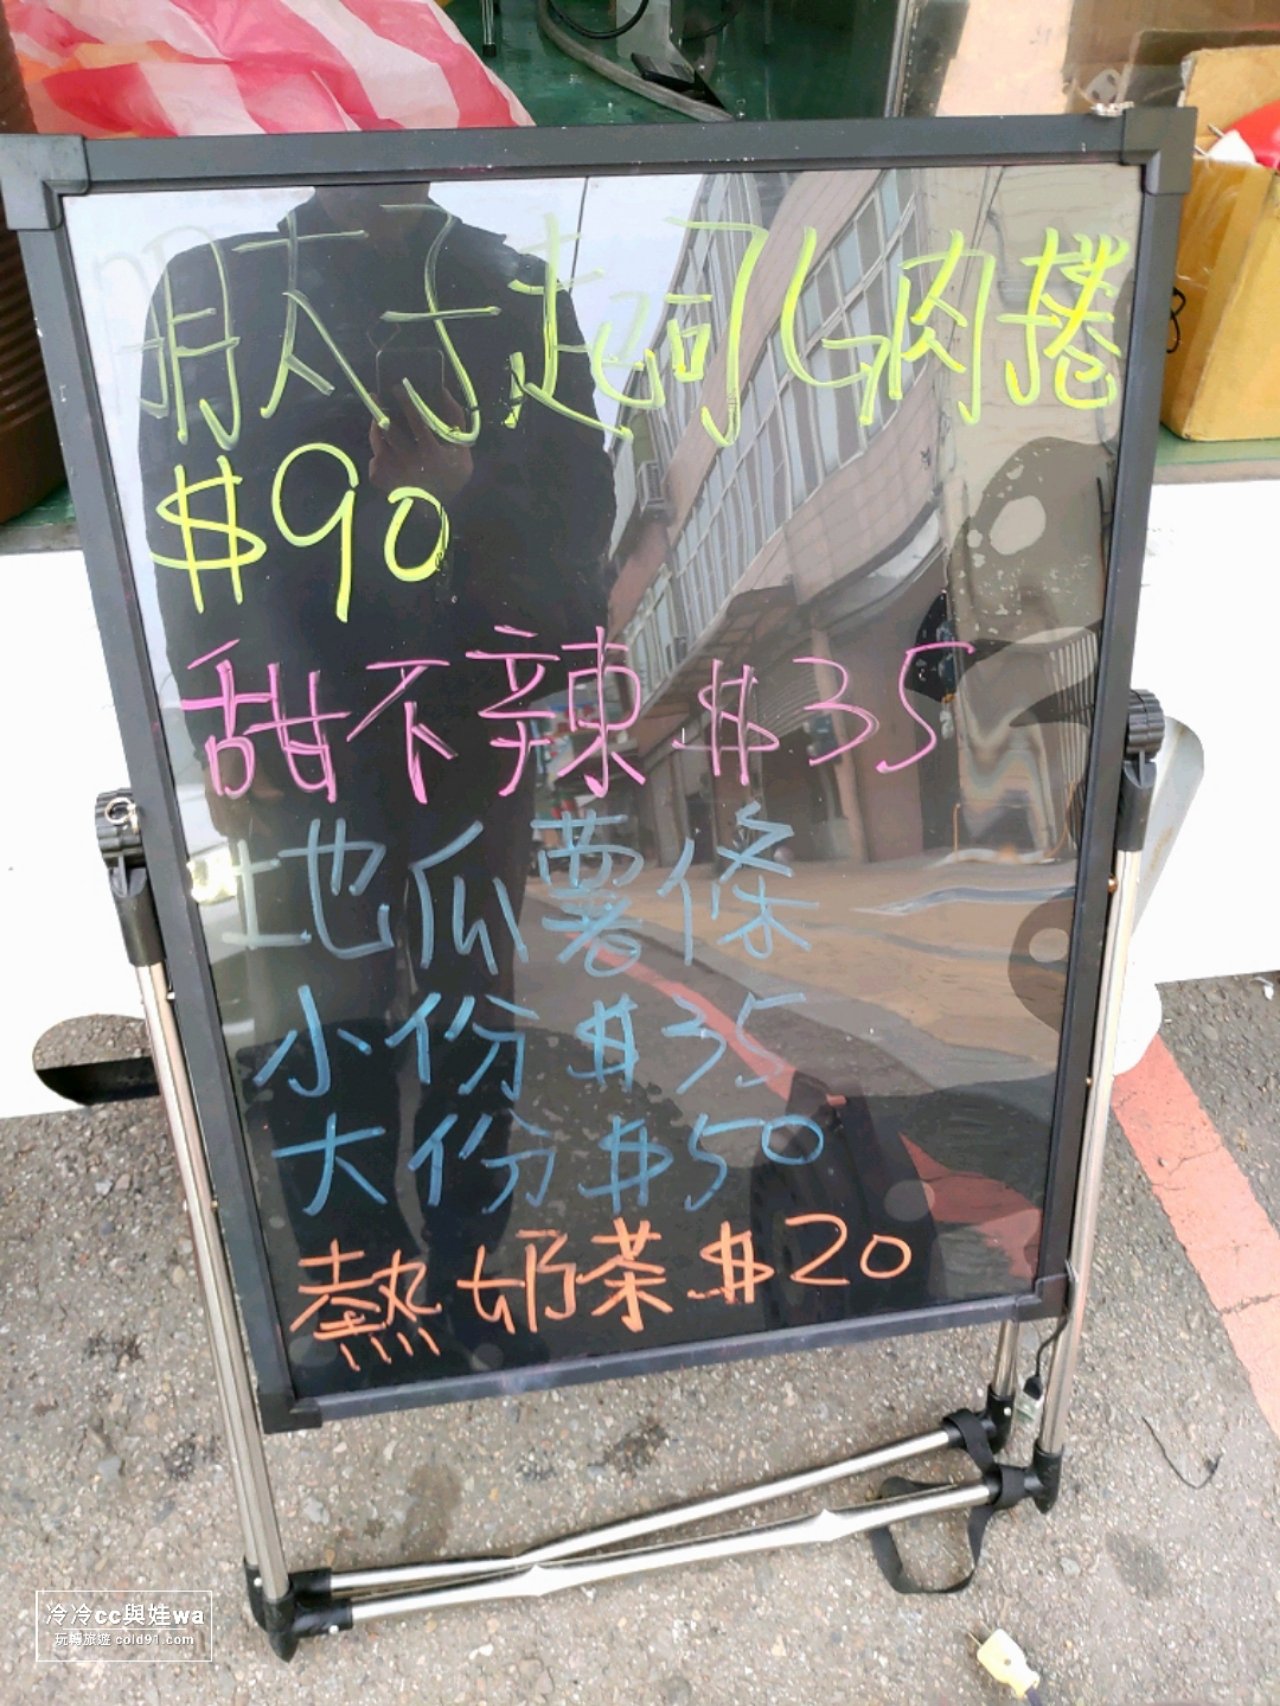 明太子起司ㄐ肉捲
$90
甜不辣 $35
地瓜薯條
小份 $35
大份 $50
熱奶茶 $20
冷冷cc與娃wa
玩轉旅遊 cold91.com